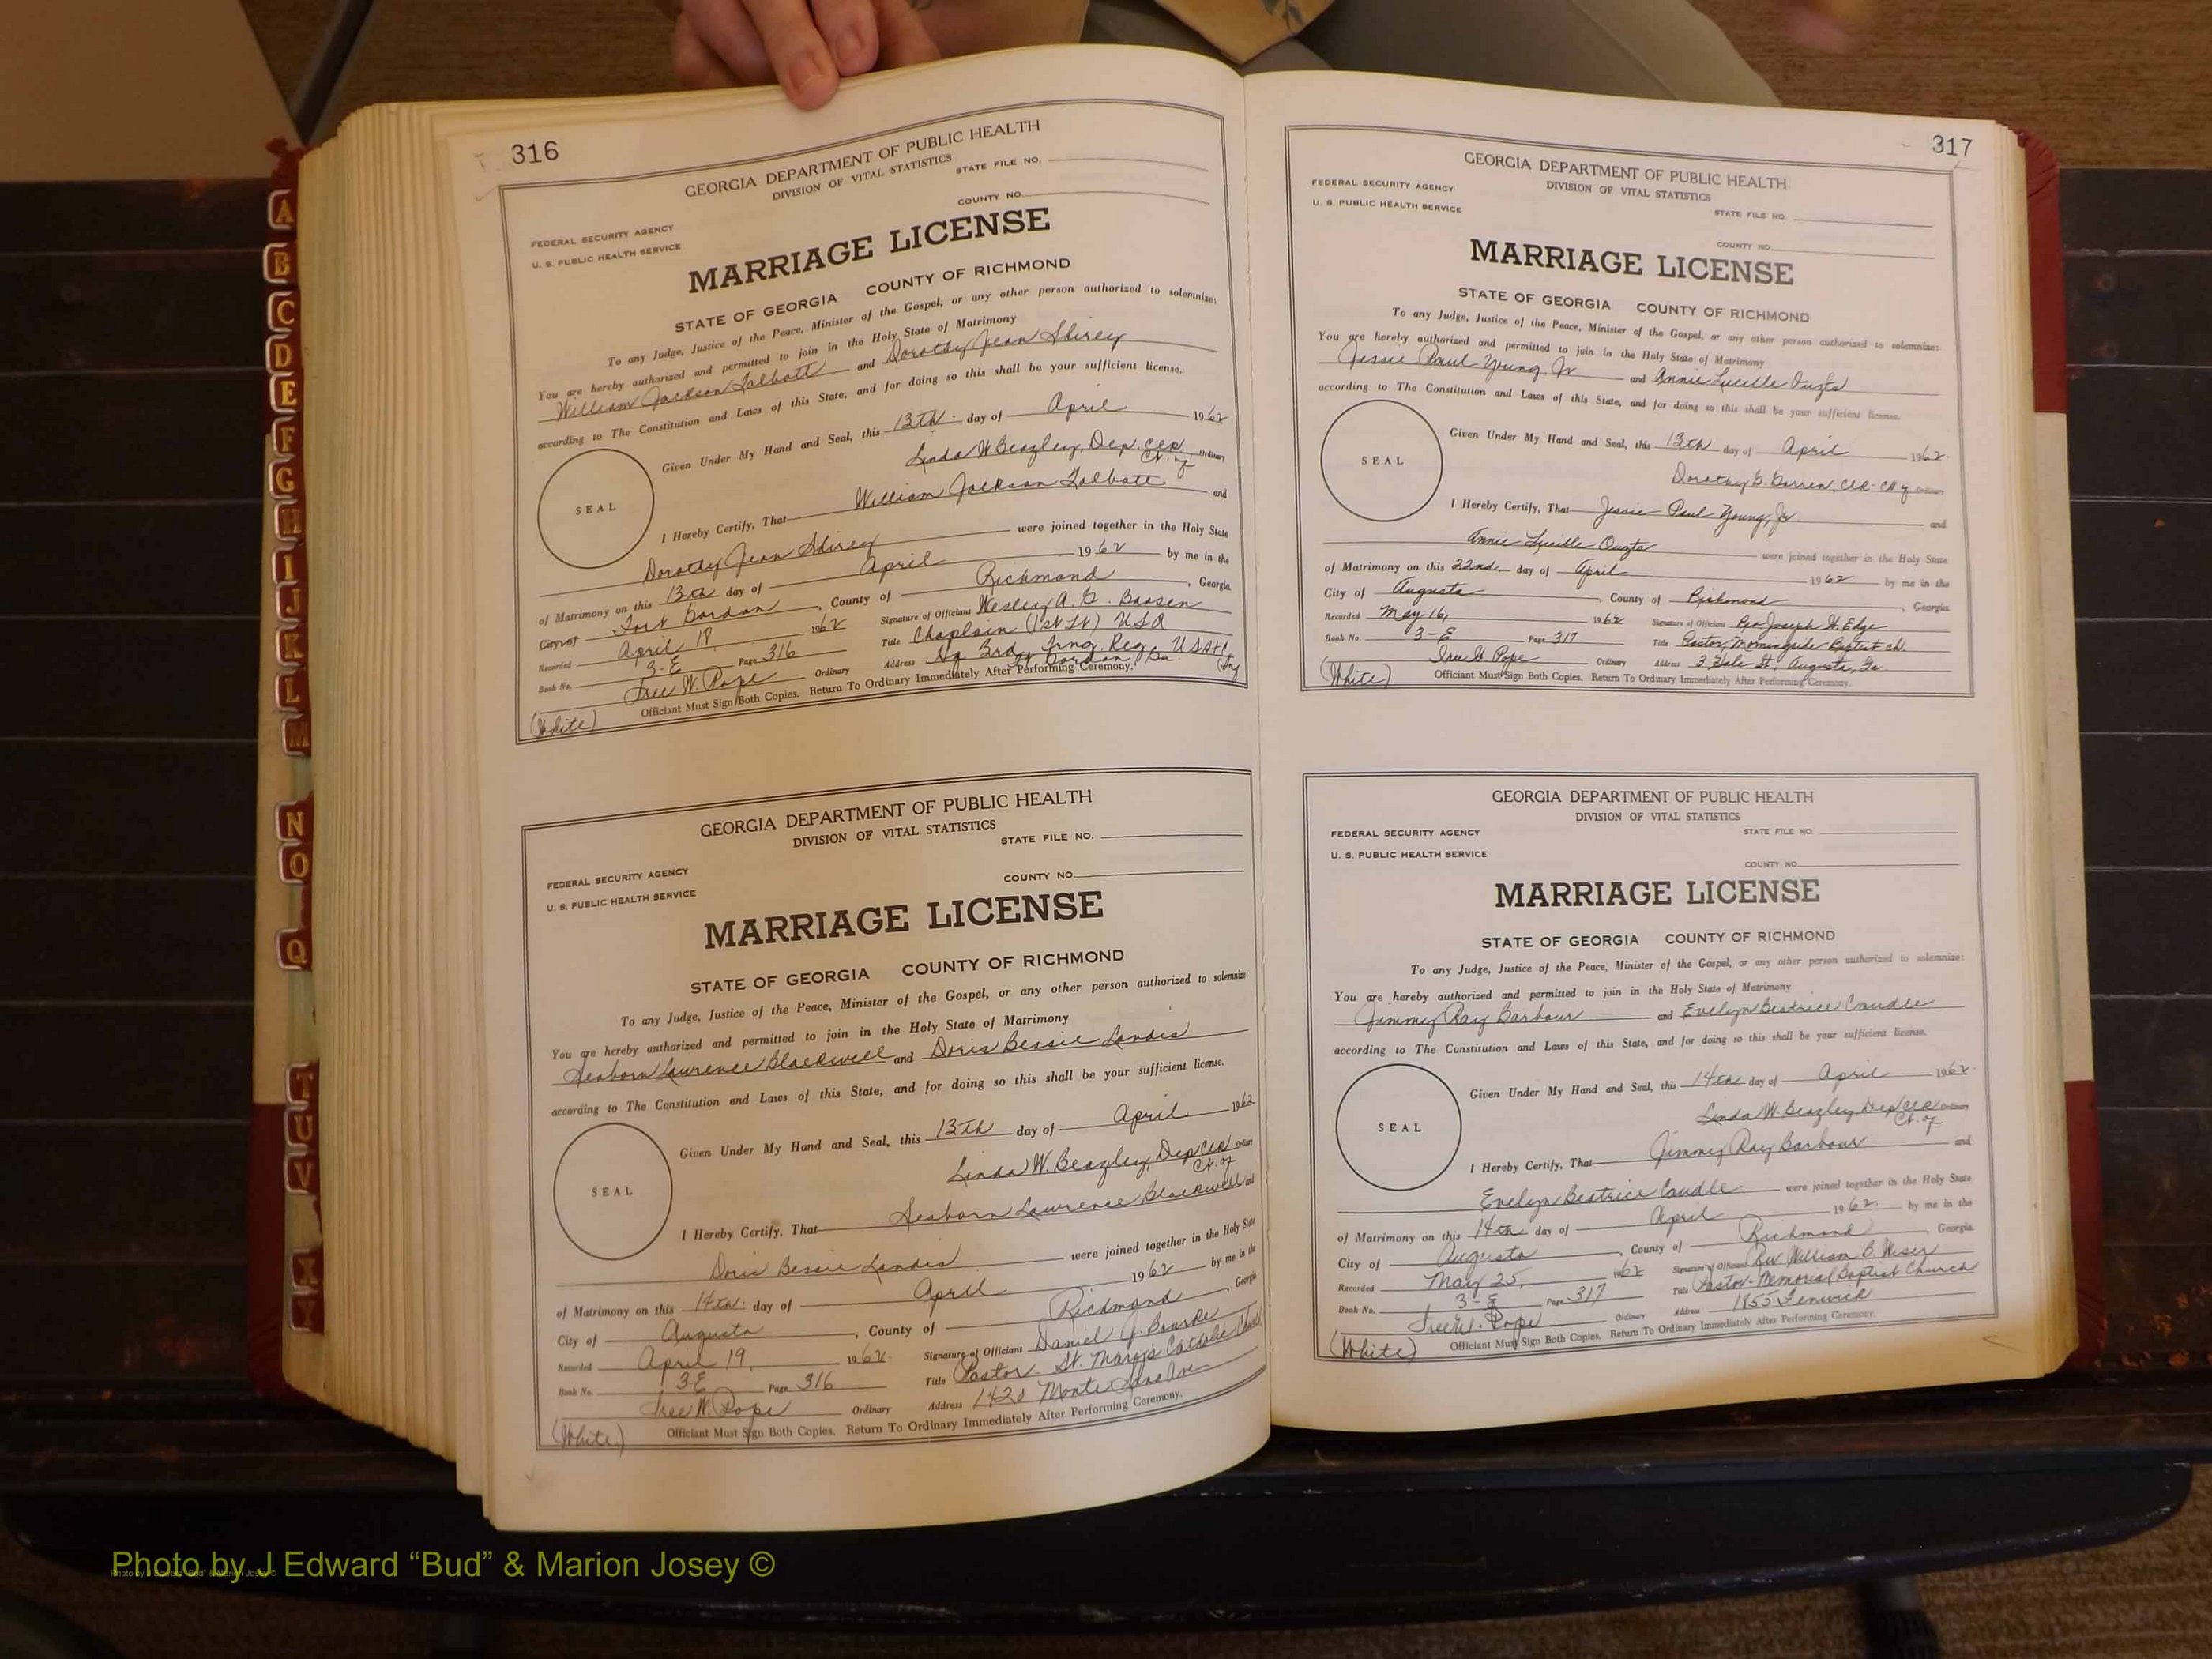 A
B
C
D
E
F
G
H
I
J
K
L
M
N
O
Q
T
U
V
X
Y
316
GEORGIA DEPARTMENT OF PUBLIC HEALTH
DIVISION OF VITAL STATISTICS
STATE FILE NO.
COUNTY NO.
FEDERAL SECURITY AGENCY
U. S. PUBLIC HEALTH SERVICE
MARRIAGE LICENSE
STATE OF GEORGIA COUNTY OF RICHMOND
To any Judge, Justice of the Peace, Minister of the Gospel, or any other person authorized to solemnize:
You are hereby authorized and permitted to join in the Holy State of Matrimony
William Jackson Talbott and Dorothy Jean Shirey
according to The Constitution and Laws of this State, and for doing so this shall be your sufficient license.
Given Under My Hand and Seal, this 13th day of April 1962
Linda W. Beazley, Dep. Clk. Ordinary
Ct. of
SEAL
I Hereby Certify, That William Jackson Talbott and
Dorothy Jean Shirey were joined together in the Holy State
of Matrimony on this 13th day of April 1962 by me in the
City of Fort Gordon, County of Richmond, Georgia.
Recorded April 18, 1962 Signature of Officiant Wesley A. G.
Book No. 3-E Page 316 Title Chaplain (1st Lt) USA
Ordinary Address Hq 3rd Trng. Reg. USATC
W. Pope Ft Gordon, Ga.
(White) Officiant Must Sign Both Copies. Return To Ordinary Immediately After Performing Ceremony.
GEORGIA DEPARTMENT OF PUBLIC HEALTH
DIVISION OF VITAL STATISTICS
STATE FILE NO.
COUNTY NO.
FEDERAL SECURITY AGENCY
U. S. PUBLIC HEALTH SERVICE
MARRIAGE LICENSE
STATE OF GEORGIA COUNTY OF RICHMOND
To any Judge, Justice of the Peace, Minister of the Gospel, or any other person authorized to solemnize:
You are hereby authorized and permitted to join in the Holy State of Matrimony
Seaborn Lawrence Blackwell and Doris Bessie Landis
according to The Constitution and Laws of this State, and for doing so this shall be your sufficient license.
Given Under My Hand and Seal, this 13th day of April 1962
Linda W. Beazley, Dep Clk Ordinary
Ct. of
SEAL
I Hereby Certify, That Seaborn Lawrence Blackwell and
Doris Bessie Landis were joined together in the Holy State
of Matrimony on this 14th day of April 1962 by me in the
City of Augusta, County of Richmond, Georgia
Recorded April 19, 1962 Signature of Officiant Daniel J. Bourke
Book No. 3-E Page 316 Title Pastor - St. Mary's Catholic
W. Pope Ordinary Address 1420 Monte Sano Ave
(White) Officiant Must Sign Both Copies. Return To Ordinary Immediately After Performing Ceremony.
317
GEORGIA DEPARTMENT OF PUBLIC HEALTH
DIVISION OF VITAL STATISTICS
STATE FILE NO.
COUNTY NO.
FEDERAL SECURITY AGENCY
U. S. PUBLIC HEALTH SERVICE
MARRIAGE LICENSE
STATE OF GEORGIA COUNTY OF RICHMOND
To any Judge, Justice of the Peace, Minister of the Gospel, or any other person authorized to solemnize:
You are hereby authorized and permitted to join in the Holy State of Matrimony
Jessie Paul Young, Jr and Annie Lucille Ouzts
according to The Constitution and Laws of this State, and for doing so this shall be your sufficient license.
Given Under My Hand and Seal, this 13th day of April 1962
Dorothy G. Ordinary
SEAL
I Hereby Certify, That Jessie Paul Young, Jr. and
Annie Lucille Ouzts were joined together in the Holy State
of Matrimony on this 22nd day of April 1962 by me in the
City of Augusta, County of Richmond, Georgia
Recorded May 16, 1962 Signature of Officiant Joseph H. Edge
Book No. 3-E Page 317 Title Pastor, Morningside Baptist Ch.
W. Pope Ordinary Address 3 Dale St., Augusta, Ga.
(White) Officiant Must Sign Both Copies. Return To Ordinary Immediately After Performing Ceremony.
GEORGIA DEPARTMENT OF PUBLIC HEALTH
DIVISION OF VITAL STATISTICS
STATE FILE NO.
COUNTY NO.
FEDERAL SECURITY AGENCY
U. S. PUBLIC HEALTH SERVICE
MARRIAGE LICENSE
STATE OF GEORGIA COUNTY OF RICHMOND
To any Judge, Justice of the Peace, Minister of the Gospel, or any other person authorized to solemnize:
You are hereby authorized and permitted to join in the Holy State of Matrimony
Jimmy Ray Barbour and Evelyn Beatrice Caudle
according to The Constitution and Laws of this State, and for doing so this shall be your sufficient license.
Given Under My Hand and Seal, this 14th day of April 1962
Linda W. Beazley, Dep Clk Ordinary
Ct. of
SEAL
I Hereby Certify, That Jimmy Ray Barbour and
Evelyn Beatrice Caudle were joined together in the Holy State
of Matrimony on this 14th day of April 1962 by me in the
City of Augusta, County of Richmond, Georgia
Recorded May 25, 1962 Signature of Officiant Rev William B Wiser
Book No. 3-E Page 317 Title Pastor - Memorial Baptist Church
W. Pope Ordinary Address 1855 Fenwick
(White) Officiant Must Sign Both Copies. Return To Ordinary Immediately After Performing Ceremony.
Photo by J Edward “Bud” & Marion Josey ©
Photo by J Edward “Bud” & Marion Josey ©